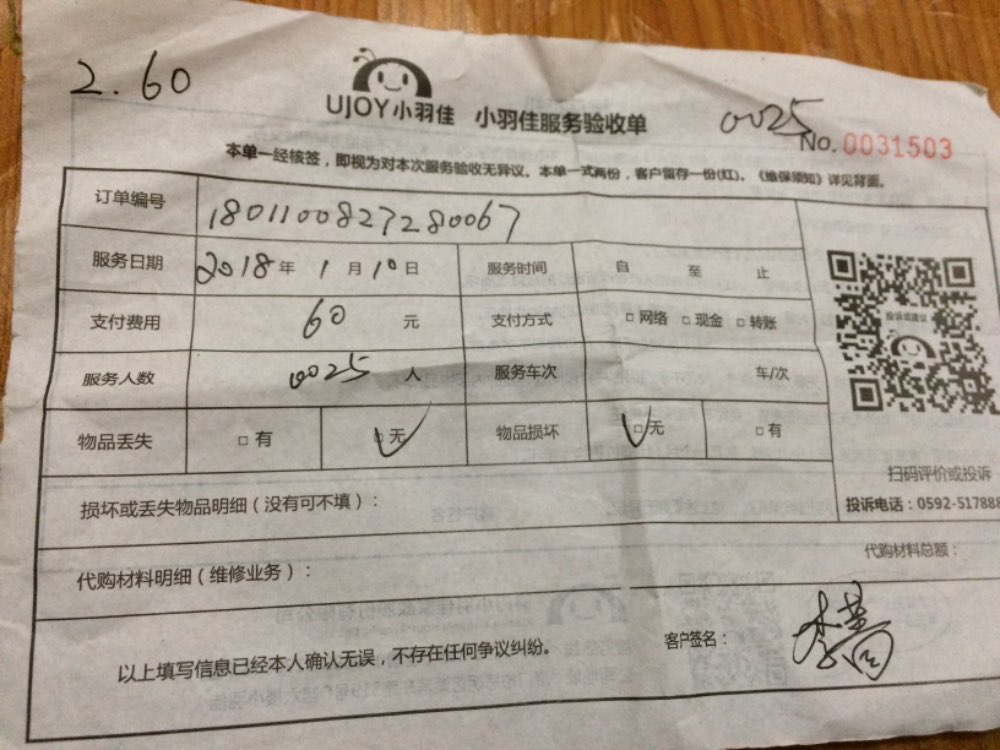 2.60
UJOY小羽佳 小羽佳服务验收单
0025
No.0031503
本单一经核签，即视为对本次服务验收无异议。本单一式两份，客户留存一份(红)。《维保须知》详见背面。
订单编号 1801100827280067
服务日期 2018年1月10日 服务时间 自 至 止
支付费用 60 元 支付方式 □网络 □现金 □转账
投诉或建议
服务人数 0025 人 服务车次 车/次
物品丢失 □有 □无 物品损坏 □无 □有
扫码评价或投诉
损坏或丢失物品明细（没有可不填）：
投诉电话：0592-517888
代购材料明细（维修业务）： 代购材料总额：
以上填写信息已经本人确认无误，不存在任何争议纠纷。 客户签名：